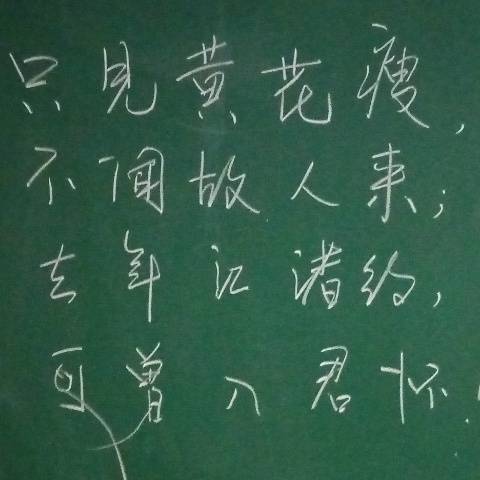 只见黄花瘦,
不闻故人来;
去年江渚约,
可曾入君怀!